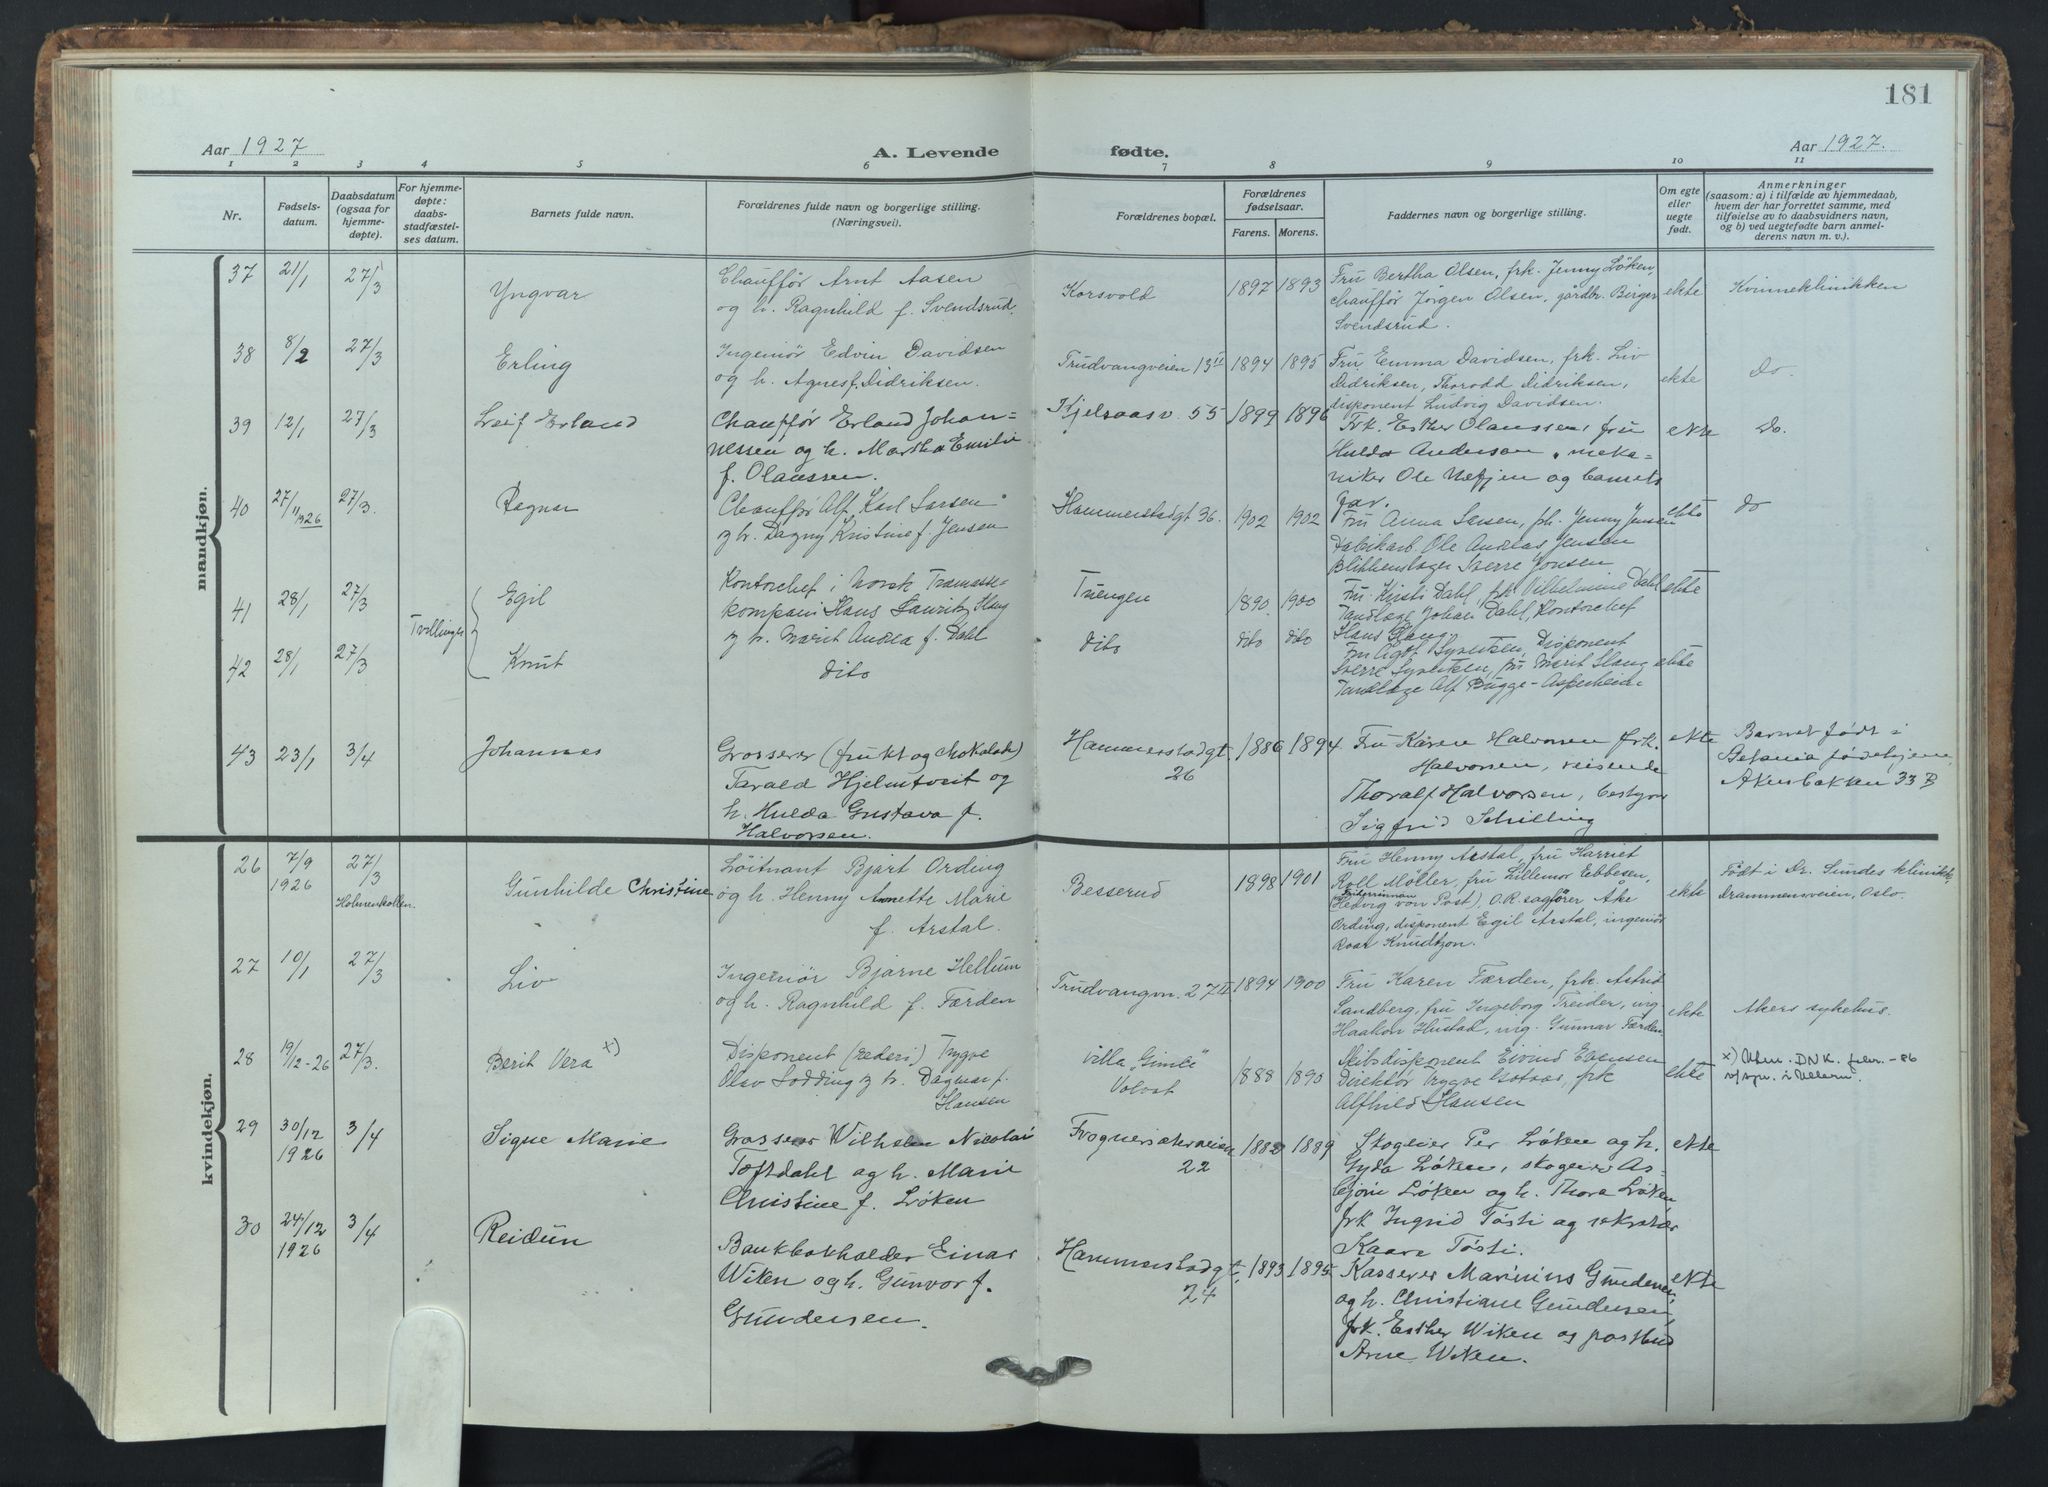 181
Aar 1927
A. Levende fødte.
Aar 1927.
1 2 3 4 5 6 7 8 9 10 11
Nr.
Fødsels-
datum.
Daabsdatum
(ogsaa for
hjemme-
døpte).
For hjemme-
døpte:
daabs-
stadfæstel-
ses datum.
Barnets fulde navn.
Forældrenes fulde navn og borgerlige stilling.
(Næringsvei).
Forældrenes bopæl.
Forældrenes
fødselsaar.
Farens. Morens.
Faddernes navn og borgerlige stilling.
Om egte
eller
uegte
født.
Anmerkninger
(saasom: a) i tilfælde av hjemmedaab,
hvem der har forrettet samme, med
tilføielse av to daabsvidners navn,
og b) ved uegtefødte barn anmel-
derens navn m. v.).
mandkjøn.
37 21/1 27/3
Yngvar
Chauffør Arnt Aasen
og h. Ragnhild f. Svendsrud.
Korsvold
1897 1893
Fru Bertha Olsen, frk. Jenny Løken,
chauffør Jørgen Olsen, gårdbr. Birger
Svendsrud.
ekte
Kvinneklinikken
38 8/2 27/3
Erling
Ingeniør Edvin Davidsen
og h. Agnes f. Didriksen.
Trudvangveien 13 II
1894 1895
Fru Emma Davidsen, frk. Liv
Didriksen, Thorodd Didriksen,
disponent Ludvig Davidsen.
ekte
Do.
39 12/1 27/3
Leif Erland
Chauffør Erland Johan=
nessen og h. Martha Emilie
f. Olaussen.
Kjelsaasv. 55
1899 1896
Frk. Esther Olaussen, fru
Hulda Anderson, meka=
niker Ole Nefjen og barnets
far.
ekte
Do.
40 27/11 1926 27/3.
Ragnar
Chauffør Alf Karl Larsen
og h. Dagny Kristine f. Jensen
Hammerstadgt 36.
1902 1902
Fru Anna Larsen, frk. Jenny Jensen
Fabrikarb. Ole Andreas Jensen
Blikkenslager Sverre Jonsen
ekte
do
41 28/1 27/3
Tvillinger
Egil
Kontorchef i Norsk Tramasse=
kompani Hans Lauritz Haug
og h. Marit Andrea f. Dahl
Tuengen
1890. 1900
Fru Kristi Dahl, frk Vilhelmine Dahl
Tandlæge Johan Dahl, Kontorchef
Hans Haug
ekte
42 28/1 27/3
Knut
dito
dito
dito dito
Fru Agot Syvertsen, Disponent
Sverre Syvertsen, fru Marit Haug
Tandlæge Alf Bugge-Asperheim.
ekte
43 23/1 3/4
Johannes
Grosserer (frukt og chokolade)
Tarald Hjelmtveit og
h. Hulda Gustava f.
Halvorsen.
Hammerstadgt.
26
1886 1894
Fru Karen Halvorsen frk.
Halvorsen, reisende
Thoralf Halvorsen, bestyrer
Sigfrid Schilling
ekte
Barnet født i
Betania fødehjem,
Akersbakken 33 B
kvindekjøn.
26 7/9 1926 27/3 Holmenkollen.
Gunhilde Christine
Løitnant Bjart Ording
og h. Henny Annette Marie
f. Arstal.
Besserud
1898 1901
Fru Henny Arstal, fru Harriet
Roll Møller, fru Lillemor Ebbesen,
(Friherrinne
Hedvig von Post). O.R.sagfører Åke
Ording, disponent Egil Arstal, ingeniør
Roar Knudtzon.
ekte
Født i Dr. Sundes klinikk,
Drammensveien, Oslo.
27 10/1 27/3
Liv
Ingeniør Bjarne Hellum
og h. Ragnhild f. Færden
Trudvangvn. 27 II
1894 1900
Fru Karen Færden, frk. Astrid
Sandberg, fru Ingeborg Treider, ing.
Haakon Hustad, ing. Gunnar Færden.
ekte
Akers sykehus.
28 19/12-26 27/3.
Berit Vera x)
Disponent (rederi) Trygve
Olav Lodding og h. Dagmar f.
Hansen
Villa "Gimle"
Volvat
1888 1890
Skibsdisponent Eivind Evensen
Direktør Trygve Gotaas, frk
Alfhild Hansen
ekte
x) Utm. DNK. febr. -86
v/spr. i Ullern.
29 30/12 1926 3/4
Signe Marie
Grosserer Wilhelm Nicolai
Toftdahl og h. Marie
Christine f. Løken
Frognersæterveien
22
1882 1889
Skogeier Per Løken og h.
Gyda Løken, skogeier As=
bjørn Løken og h. Thora Løken,
frk Ingrid Tosti og sekretær
Kaare Tosti.
ekte
30 24/12 1926 3/4
Reidun
Bankbokholder Einar
Wiken og h. Gunvor f.
Gundersen.
Hammerstadgt.
24
1893 1895
Kasserer Marinius Gundersen
og h. Christiane Gundersen,
frk. Esther Wiken og postbud
Arne Wiken.
ekte